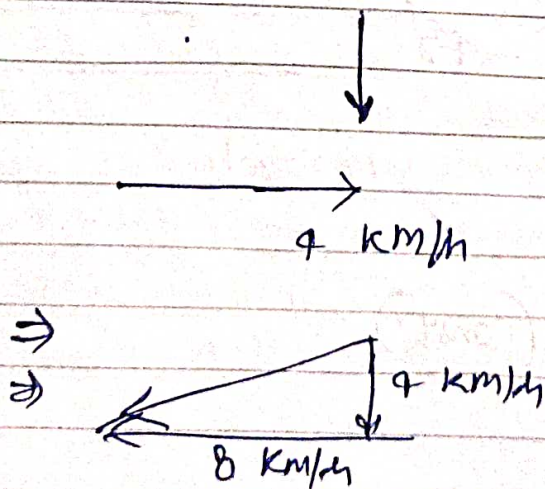 4 KM/h
⇒
⇒ 4 KM/h
8 KM/h